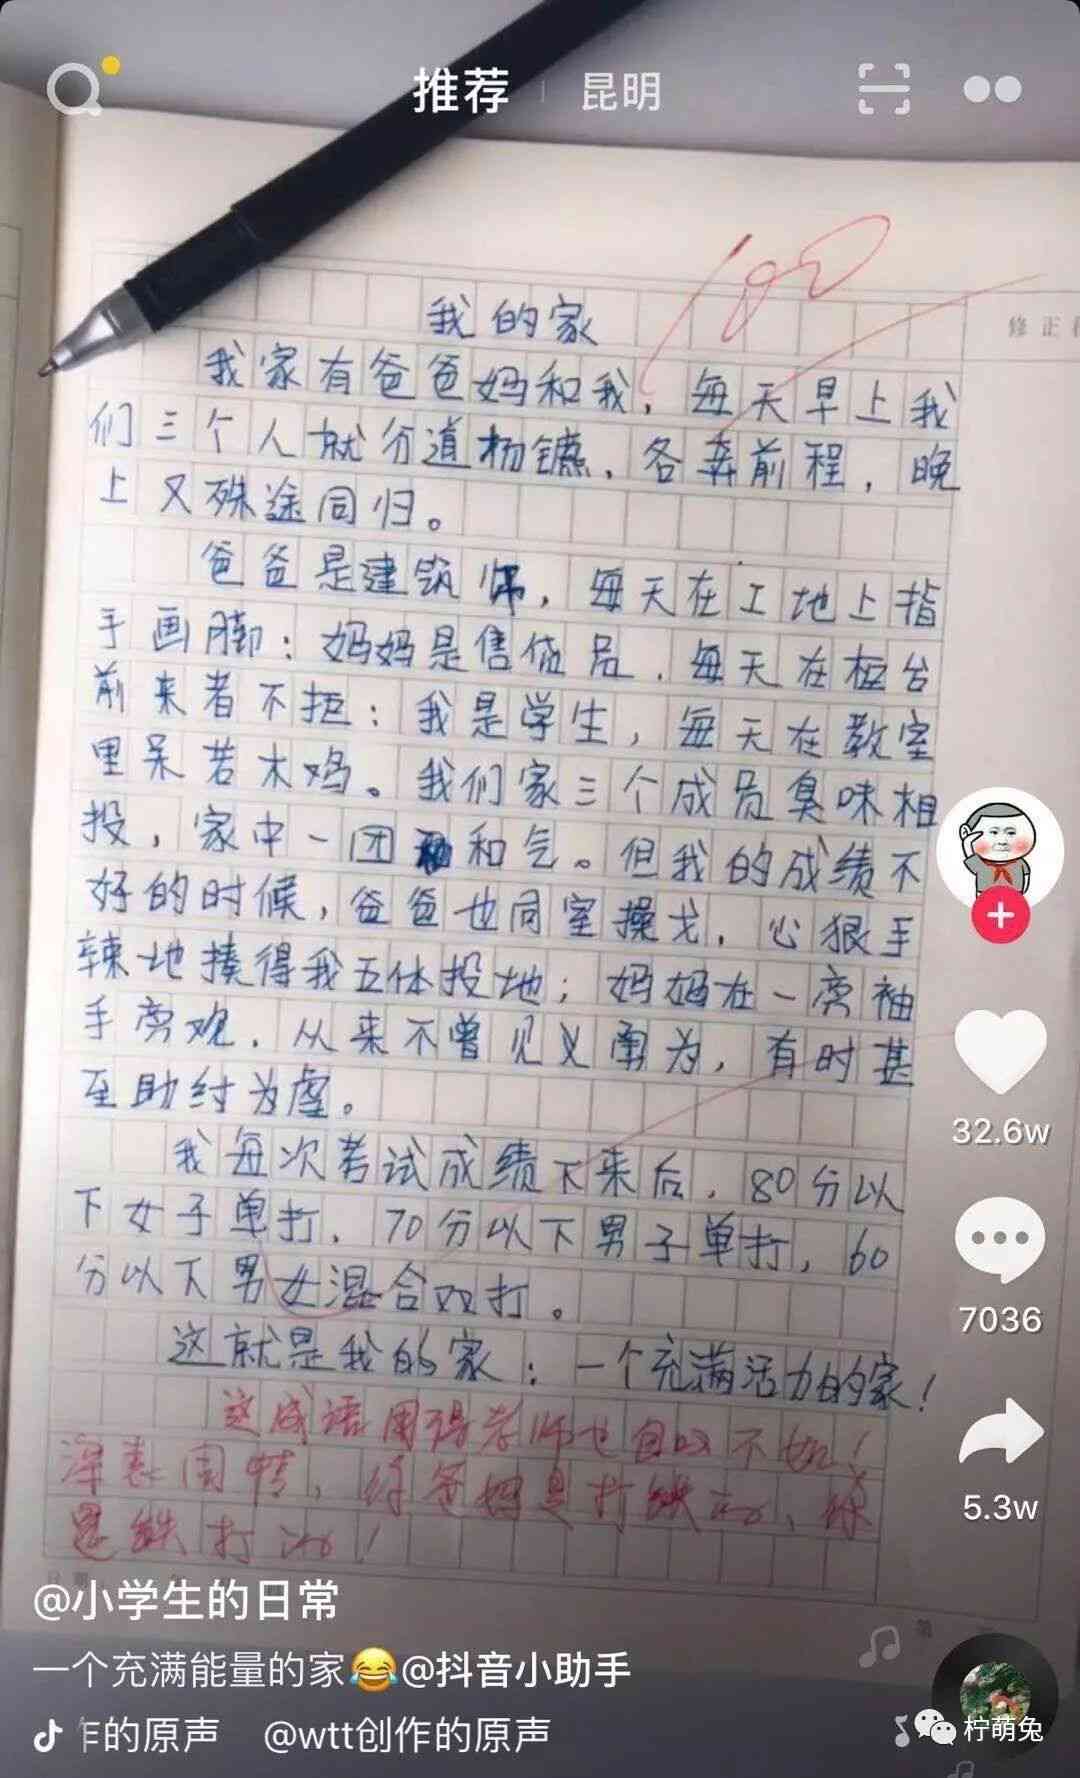 推荐
昆明
100
修正
我的家
我家有爸爸妈和我，每天早上我
们三个人就分道杨镳，各奔前程，晚
上又殊途同归。
爸爸是建筑师，每天在工地上指
手画脚；妈妈是售货员，每天在柜台
前来者不拒；我是学生，每天在教室
里呆若木鸡。我们家三个成员臭味相
投，家中一团和气。但我的成绩不
好的时候，爸爸也同室操戈，心狠手
辣地揍得我五体投地；妈妈在一旁袖
手旁观，从来不曾见义勇为，有时甚
至助纣为虐。
我每次考试成绩下来后，80分以
下女子单打，70分以下男子单打，60
分以下男女混合双打。
这就是我的家：一个充满活力的家！
这成语用得老师也自叹不如！
深表同情，你爸妈是打铁的，你
是铁打的！
32.6w
7036
5.3w
@小学生的日常
一个充满能量的家😂@抖音小助手
作的原声 @wtt创作的原声
柠萌兔